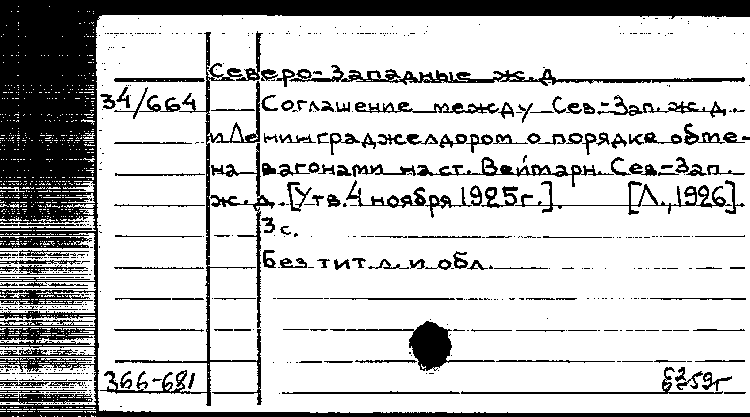 Северо-Западные ж.д.
34/664 Соглашение между Сев.-Зап. ж.д.
и Ленинграджелдором о порядке обме-
на вагонами на ст. Веймарн. Сев.-Зап.
ж.д. [Утв. 4 ноября 1925г.]. [Л., 1926].
3 с.
Без тит. л. и обл.
366-681